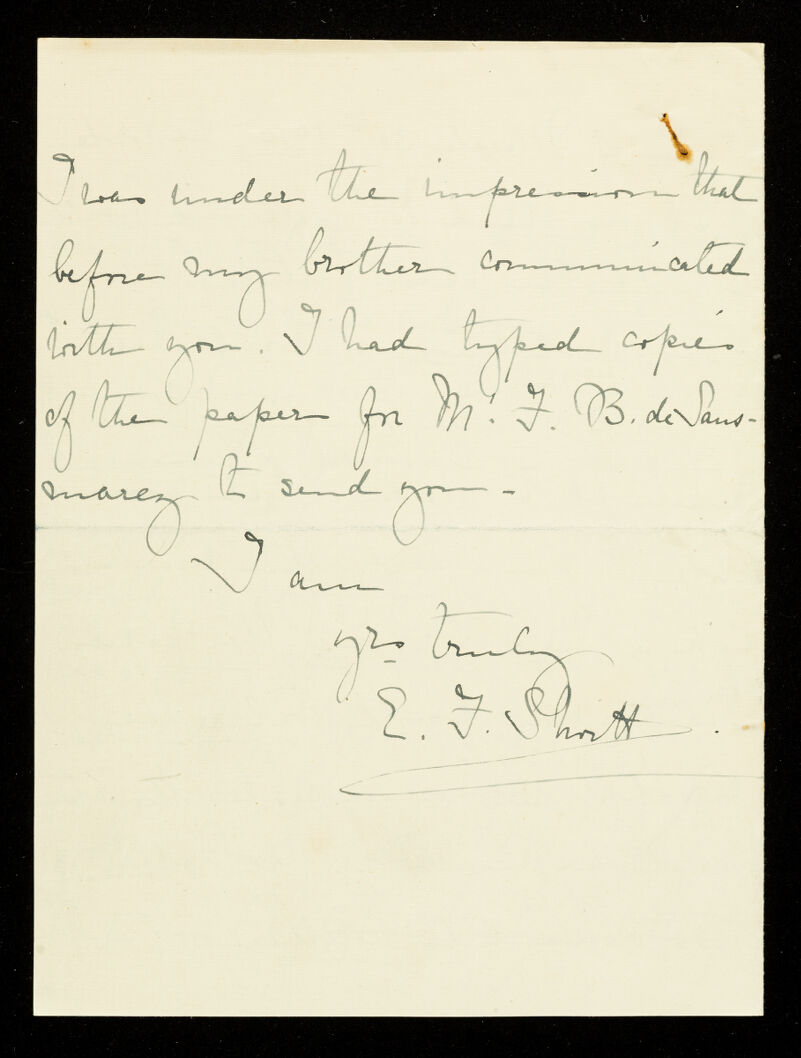 I was under the impression that
before my brother communicated
with you. I had typed copies
of the paper for Mr. F. B. de Saus-
marez to send you -
I am
yrs truly
E. F. Shortt.